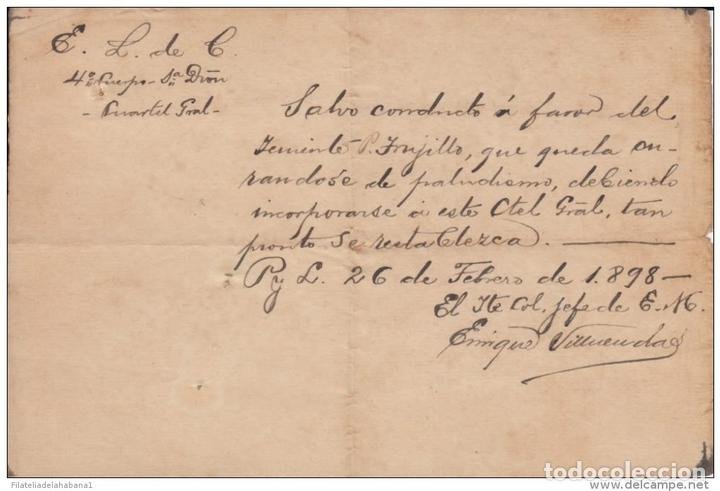 E. L. de C.
4º Cuerpo - Sª Dión
- Cuartel Gral -
Salvo conducto á favor del
Teniente P. Trujillo, que queda cu-
randose de paludismo, debiendo
incorporarse á este Ctel Gral, tan
pronto se restablezca. ———
P y L. 26 de Febrero de 1.898 —
El Tte Col. Jefe de E. M.
Enrique Villuendas
Filateliadelahabana1
todocoleccion.net